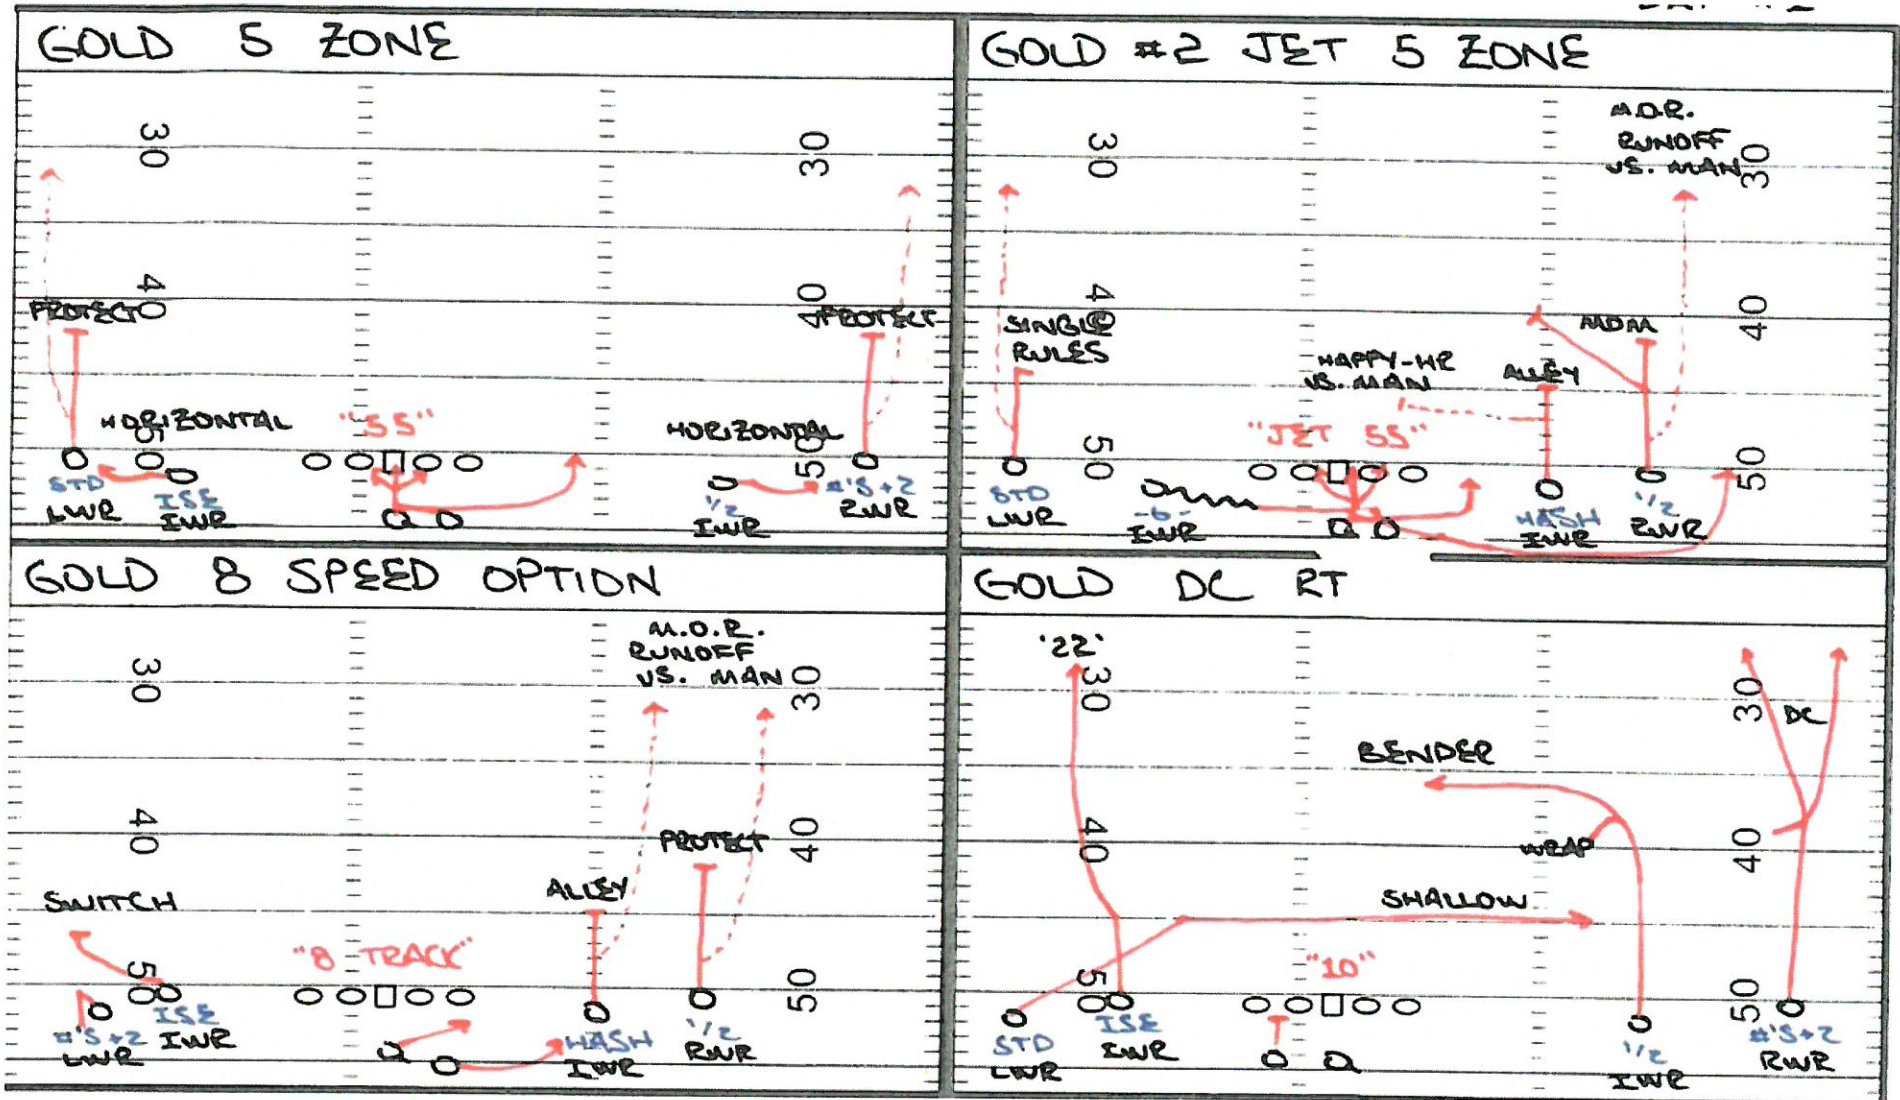 GOLD 5 ZONE
30
30
40
40
PROTECT
PROTECT
HORIZONTAL
"55"
HORIZONTAL
50
50
STD
LWR
ISE
IWR
Q
1/2
IWR
#'S+2
RWR
GOLD #2 JET 5 ZONE
M.O.R.
RUNOFF
VS. MAN
30
30
40
40
SINGLE
RULES
MDM
HAPPY-HR
VS. MAN
ALLEY
"JET 55"
50
50
STD
LWR
-6-
IWR
Q
HASH
IWR
1/2
RWR
GOLD 8 SPEED OPTION
M.O.R.
RUNOFF
VS. MAN
30
30
40
40
PROTECT
ALLEY
SWITCH
"8 TRACK"
50
50
#'S+2
LWR
ISE
IWR
Q
HASH
IWR
1/2
RWR
GOLD DC RT
'22'
30
30
DC
BENDER
40
40
WRAP
SHALLOW
"10"
50
50
STD
LWR
ISE
IWR
Q
1/2
IWR
#'S+2
RWR